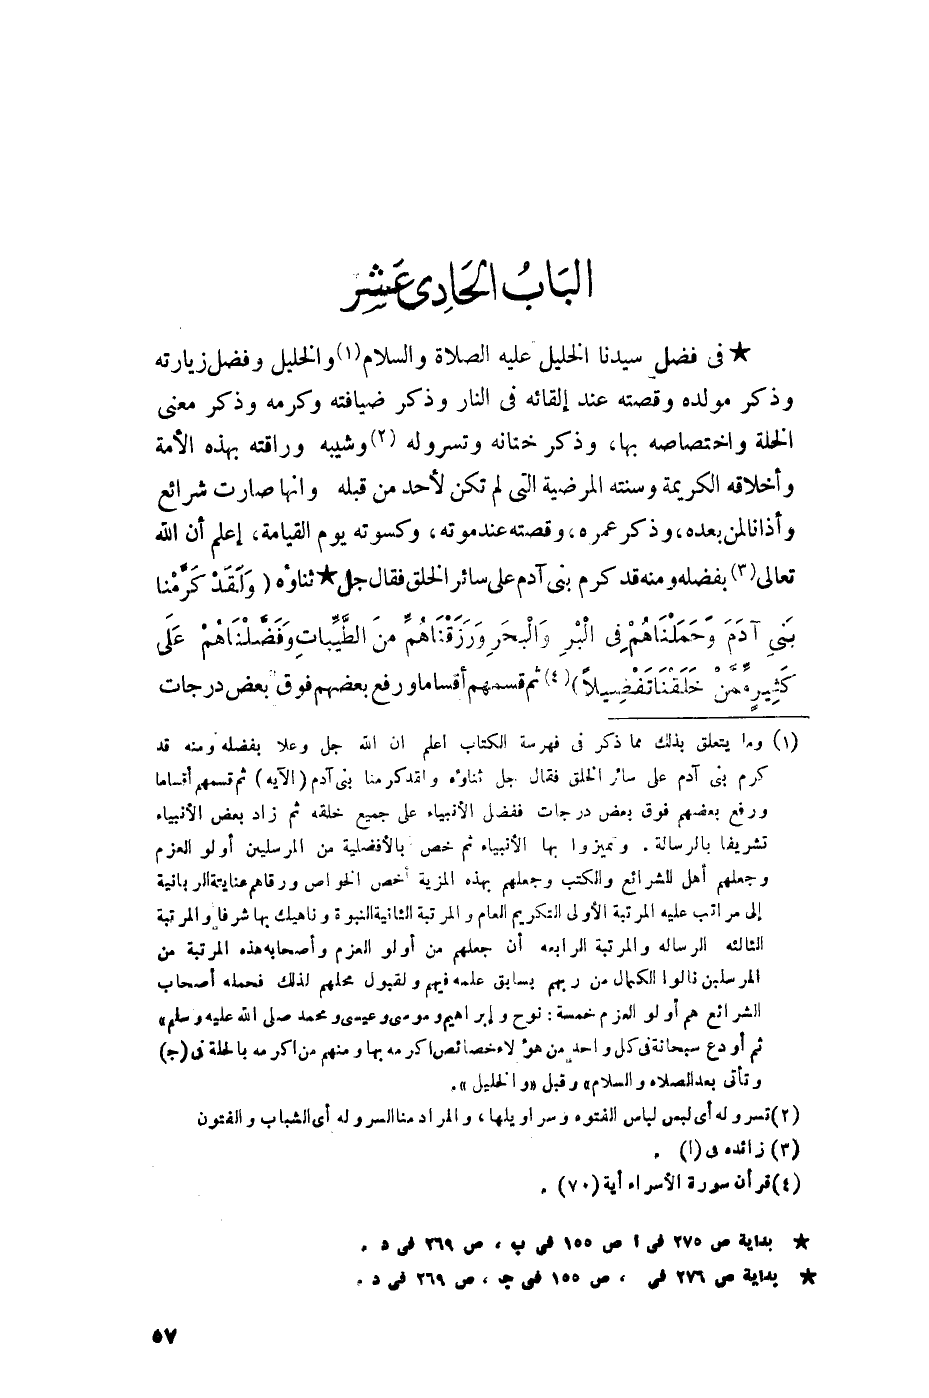 البَابُ الحَادِى عَشِر
★ فى فضل سيدنا الخليل عليه الصلاة والسلام(١)والخليل وفضل زيارته
وذكر مولده وقصته عند إلقائه فى النار وذكر ضيافته وكرمه وذكر معنى
الخلة واختصاصه بها، وذكر ختانه وتسروله (٢)وشيبه وراقته بهذه الأمة
وأخلاقه الكريمة وسنته المرضية التى لم تكن لأحد من قبله وانها صارت شرائع
وأذانا لمن بعده، وذكر عمره، وقصته عند موته، وكسوته يوم القيامة، إعلم أن الله
تعالى(٣) بفضله ومنه قد كرم بنى آدم على سائر الخلق فقال جل★ ثناؤه ( وَلَقَدْ كَرَّمْنا
بَنِي آدَمَ وَحَمَلْنَاهُمْ فِى الْبْرِ وَالْبَحَرِ وَرَزَقْنَاهُمْ مِنَ الطَّيِّبَاتِ وَفَضَّلْنَاهُمْ عَلَى
كَثِيرٍ مِّمَّنْ خَلَقْنَا تَفْضِيلاً )(٤) ثم قسمهم أقساما ورفع بعضهم فوق بعض درجات
(١) وما يتعلق بذلك مما ذكر فى فهرسة الكتاب اعلم ان الله جل وعلا بفضله ومنه قد
كرم بنى آدم على سائر الخلق فقال جل ثناؤه ولقد كرمنا بنى آدم (الآيه) ثم قسمهم أقساما
ورفع بعضهم فوق بعض درجات ففضل الأنبياء على جميع خلقه ثم زاد بعض الأنبياء
تشريفا بالرسالة . وتميزوا بها الأنبياء ثم خص بالأفضلية من المرسلين أولو العزم
وجعلهم أهل للشرائع والكتب وجعلهم بهذه المزية أخص الخواص ورقاهم عنايته الربانية
إلى مراتب عليه المرتبة الأولى التكريم العام والمرتبة الثانية النبوة وناهيك بها شرفا والمرتبة
الثالثه الرساله والمرتبة الرابعه أن جعلهم من أولو العزم وأصحابه هذه المرتبة من
المرسلين نالوا الكمال من ربهم بسابق علمه فيهم ولقبول محلهم لذلك فحمله أصحاب
الشرائع هم أولو العزم خمسة : نوح وإبراهيم وموسى وعيسى ومحمد صلى الله عليه وسلم»
ثم أودع سبحانة فى كل واحد من هؤلاء خصائص اكرمه بها ومنهم من اكرمه بالخلة فى (ج)
وتأتى بعد الصلاه والسلام» وقبل «والخليل».
(٢) تسروله أى لبس لباس الفتوه وسراويلها، والمراد منا السروله أى الشباب والفتون
(٣) زائده فى (ا) .
(٤) قرأن سورة الأسراء أية (٧٠) .
★ بداية ص ٢٧٥ فى ا ص ١٥٥ فى ب ، ص ٢٦٩ فى د .
★ بداية ص ٢٧٦ فى ، ص ١٥٥ فى ج ، ص ٢٦٩ فى د .
٥٧